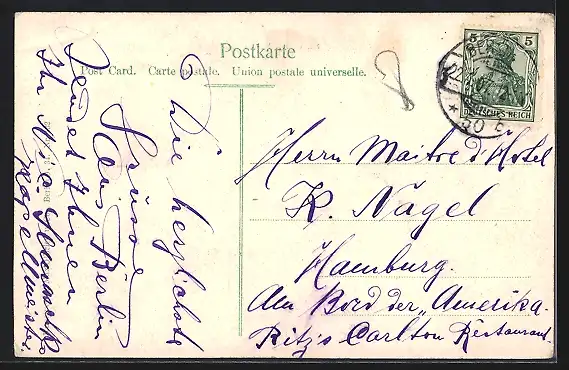 Postkarte
Post Card. Carte postale. Union postale universelle.
5 5
BERLIN
DEUTSCHES REICH
Die herzlichste
Grüsse
aus Berlin
sendet Ihnen
Ihr
Kapellmeister.
Herrn Maitre d'Hotel
K. Nagel
Hamburg.
Am Bord der „Amerika.
Ritz's Carlton Restaurant